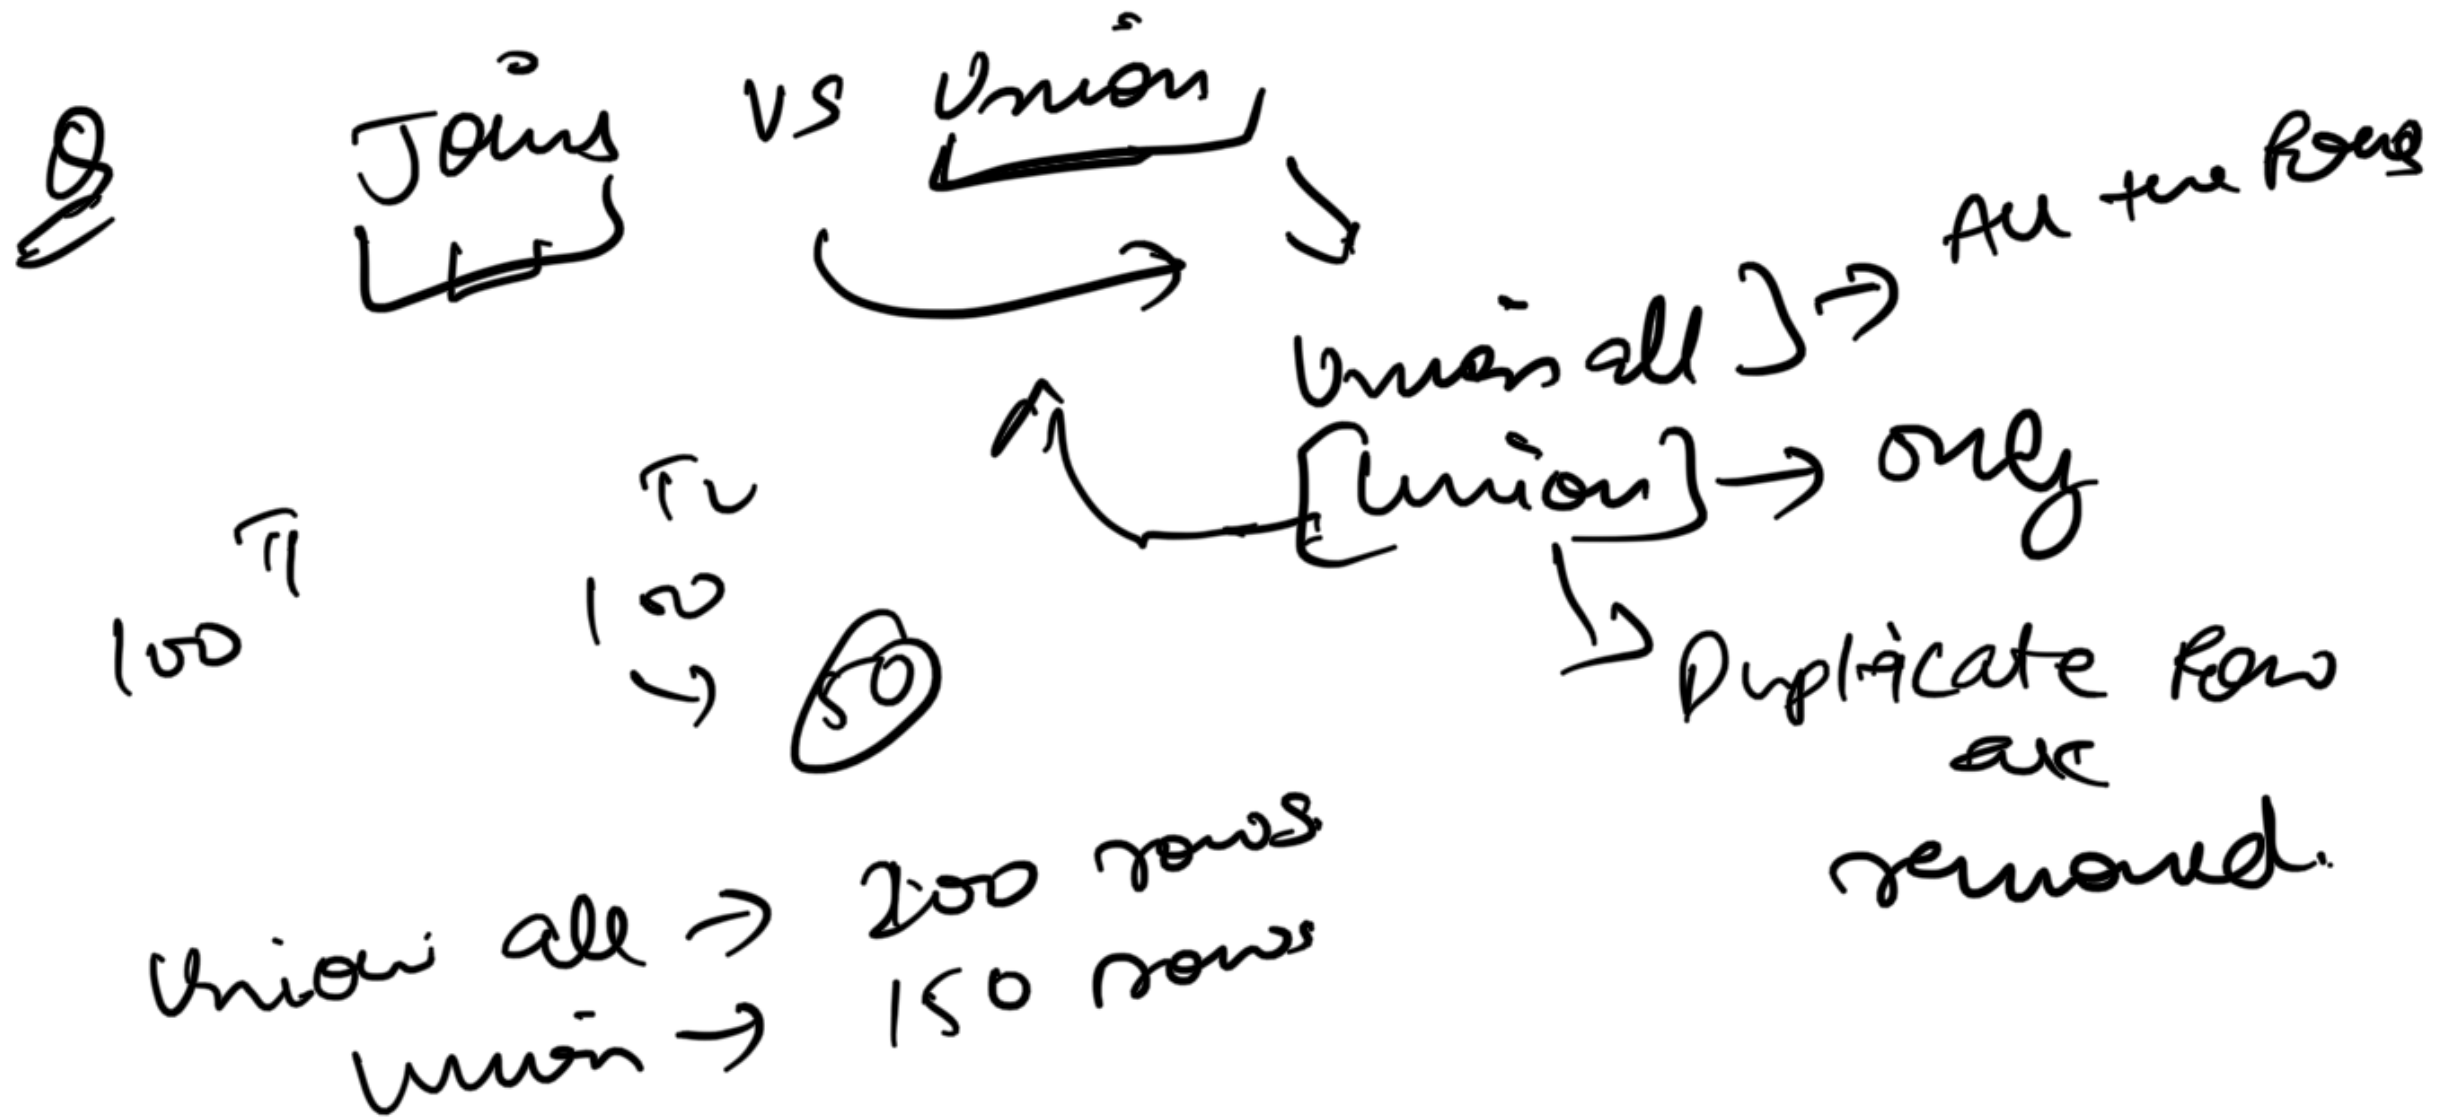 Q Joins vs Union
Union all } → All the Rows
[Union] → only
Duplicate Row
are
removed.
T1 T2
100 100
→ 50
Union all → 200 rows
Union → 150 rows